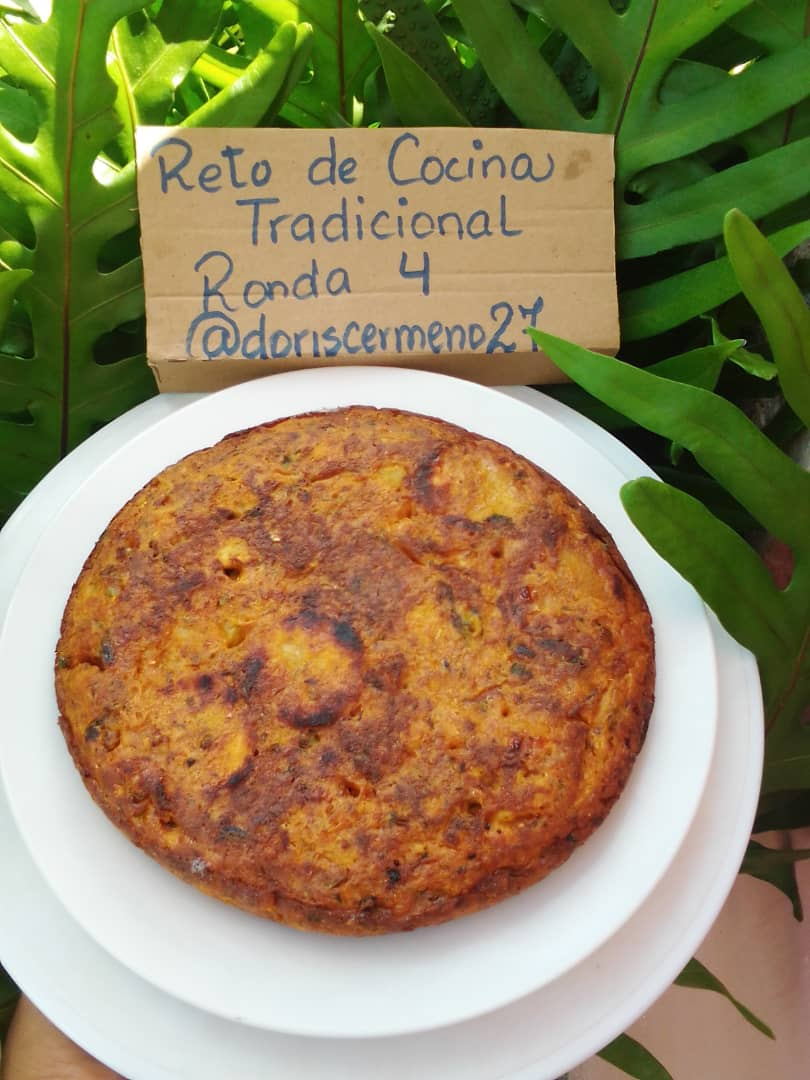 Reto de Cocina
Tradicional
Ronda 4
@doriscermeno27